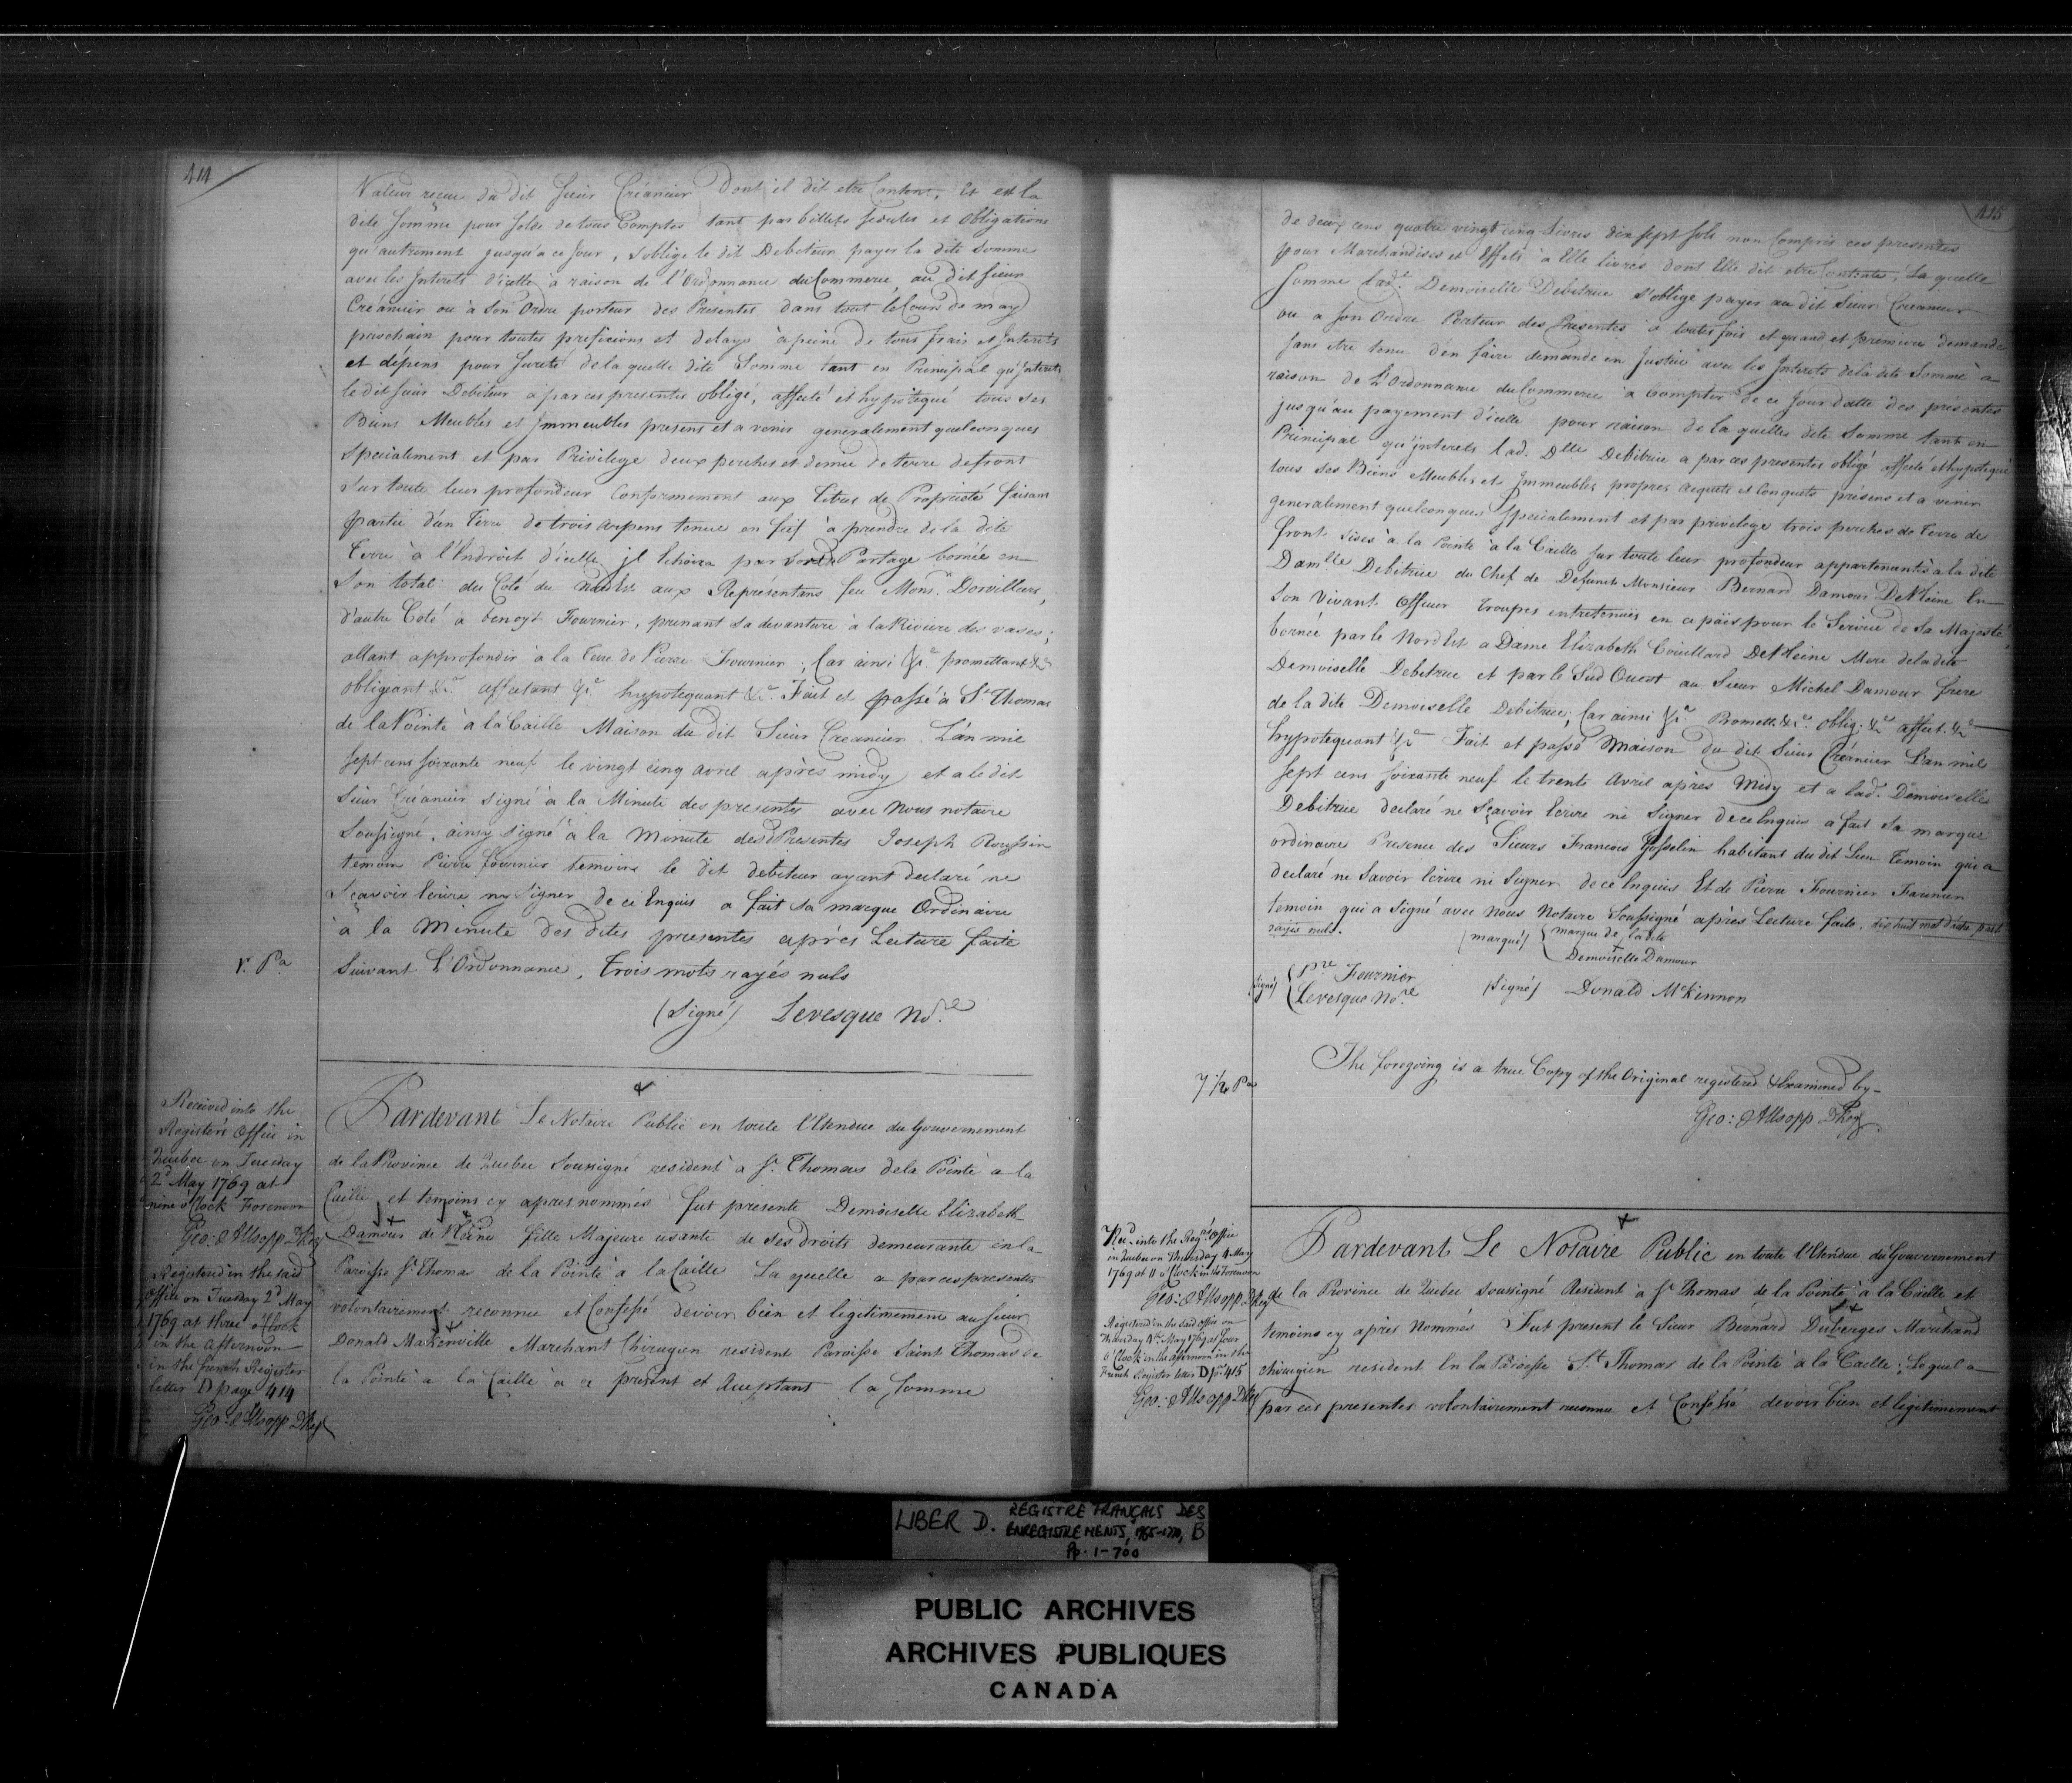 414
Valeur reçue du dit Sieur Créancier Dont il dit etre Content, Et est la
dite Somme pour Solde de tous Comptes tant par billets et Obligations
qu'autrement jusqu'a ce Jour, s'oblige le dit Debiteur payer la dite Somme
avec les Interets d'icelle à raison de l'Ordonnance du Commerce, au dit Sieur
Créancier ou à Son Ordre porteur des Presentes dans tout le Cours de may
prochain pour toutes prefixions et delays à peine de tous frais et Interets
et dépens pour Sureté de la quelle dite Somme tant en Principal qu'Interets
le dit Sieur Debiteur a par ces presentes obligé, affecté et hypotequé tous ses
Biens Meubles et Immeubles presens et a venir generalement quelconques
Specialement et par Privilege deux perches et demie de terre de front
Sur toute leur profondeur Conformement aux Titres de Proprieté faisant
partie d'un Terre de trois arpens tenue en fief à prendre de la dite
Terre à l'Indroit d'icelle il Echoira par Partage bornée en
Son total du Coté du aux Représentans feu Mons. Dorvilliers,
d'autre Coté à benoyt Fournier, prenant sa devanture à la Riviere des vases;
allant approfondir à la Terre de Pierre Fournier; Car ainsi &ca. promettant &ca
obligeant &ca. affectant &ca. hypotequant &ca. Fait et passé à St. Thomas
de la Pointe à la Caille Maison du dit Sieur Creancier L'an mil
Sept cens soixante neuf le vingt cinq avril après midy et a le dit
Sieur Créancier signé à la Minute des presentes avec Nous notaire
Soussigné. ainsy signé à la Minute des Presentes Joseph Roussin
temoin Pierre fournier temoins le dit debiteur ayant declaré ne
Sçavoir Ecrire ny Signer de ce Enquis a fait sa marque Ordinaire
à la Minute des dites presentes après Lecture faite
Suivant L'Ordonnance. Trois mots rayés nuls
(Signé) Levesque Nore
Received into the
Register's Office in
Quebec on Tuesday
2d May 1769 at
nine o'Clock Forenoon
Geo: Allsopp DReg
Registered in the said
Office on Tuesday 2d May
1769 at three o'Clock
in the afternoon
in the french Register
letter D page 414
Geo: Allsopp DReg
Pardevant Le Notaire Public en toute l'Etendue du Gouvernement
de la Province de Quebec Soussigné resident à St. Thomas de la Pointe a la
Caille et temoins cy apres nommés fut presente Demoiselle Elizabeth
Damour de Pleine fille Majeure usante de Ses droits demeurante en la
Paroisse St. Thomas de la Pointe à la Caille La quelle a par ces presentes
volontairement reconnue et Confessé devoir bien et legitimement au Sieur
Donald Makenville Marchant Chirugien resident Paroisse Saint Thomas de
la Pointe a la Caille à ce present et Acceptant la Somme
415
de deux cens quatre vingt cinq Livres dix sept Sols non Compris ces presentes
pour Marchandises et Effets à Elle livrés dont Elle dit etre Contente, La quelle
Somme lad.e Demoiselle Debitrice s'oblige payer au dit Sieur Creancier
ou a Son Ordre Porteur des Presentes à toutes fois et quand et premiere demande
Sans etre tenu d'en faire demande en Justice avec les Interets de la dite Somme à
raison de L'Ordonnance du Commerce à Compter de ce Jour datte des présentes
jusqu'au payement d'icelle pour raison de La quelle dite Somme tant en
Principal qu'Interets lad. Dlle Debitrice a par ces presentes obligé affecté et hypotequé
tous ses Biens Meubles et Immeubles, propres acquets et Conquets présens et a venir
generalement quelconques Specialement et par privilege trois perches de Terre de
front sises à la Pointe à la Caille Sur toute leur profondeur appartenantes à la dite
Damlle Debitrice du Chef de Defunct Monsieur Bernard Damour De Pleine En
Son Vivant Officier Troupes entretenues en ce païs pour le Service de Sa Majesté,
bornée par le Nord Est a Dame Elizabeth Couillard De Pleine Mere de la dite
Demoiselle Debitrice et par le Sud Ouest au Sieur Michel Damour frere
de la dite Demoiselle Debitrice; Car ainsi &ca. Promett. &ca. oblig. &ca affect. &ca
hypotequant &ca Fait et passé Maison du dit Sieur Créancier L'an mil
Sept cens soixante neuf le trente Avril après Midy et a lad. Demoiselle
Debitrice declaré ne Sçavoir Ecrire ni Signer de ce Enquis a fait Sa marque
ordinaire Presence des Sieurs Francois Gosselin habitant du dit Lieu Temoin qui a
declaré ne Savoir Ecrire ni Signer de ce Enquis Et de Pierre Fournier
temoin qui a Signé avec Nous Notaire Soussigné après Lecture faite.
(marqué) marque de la dite
Demoiselle Damour
(Signé) Pre Fournier
Levesque Nore (Signé) Donald McKinnon
7 1/2 Pa
The foregoing is a true Copy of the Original registered & Examined by
Geo: Allsopp DReg
Recd into the Regrs Office
in Quebec on Thursday 4 May
1769 at 11 o'Clock in the Forenoon
Geo: Allsopp DReg
Registered in the Said Office on
Thursday 4th May 1769 at four
o'Clock in the afternoon in the
French Register letter D Po. 415
Geo: Allsopp DReg
Pardevant Le Notaire Public en toute l'Etendue du Gouvernement
de la Province de Quebec soussigné Resident à St Thomas de la Pointe à la Caille et
temoins cy après Nommés Fut present le Sieur Bernard Duberges Marchand
chirugien resident En la Paroisse St. Thomas de la Pointe à la Caille; Lequel a
par ces presentes volontairement reconnu et Confessé devoir bien et legitimement
LIBER D. REGISTRE FRANÇAIS DES
ENREGISTREMENTS, 1765-1770, B
Pp. 1-700
PUBLIC ARCHIVES
ARCHIVES PUBLIQUES
CANADA